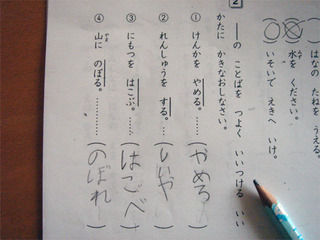 はなの たねを うえる。
水を ください。
みず
いそいで えきへ いけ。
2
の ことばを つよく いいつける いい
かたに かきなおしなさい。
① けんかを やめる。………(やめろ)
② れんしゅうを する。………(しいや)
③ にもつを はこぶ。………(はこべ)
④ 山に のぼる。………(のぼれ)
やま